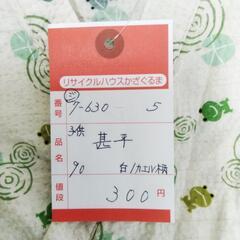 リサイクルハウスかざぐるま
番号 7-630 5
品名 子供 甚平
90 白/カエル柄
値段 300円